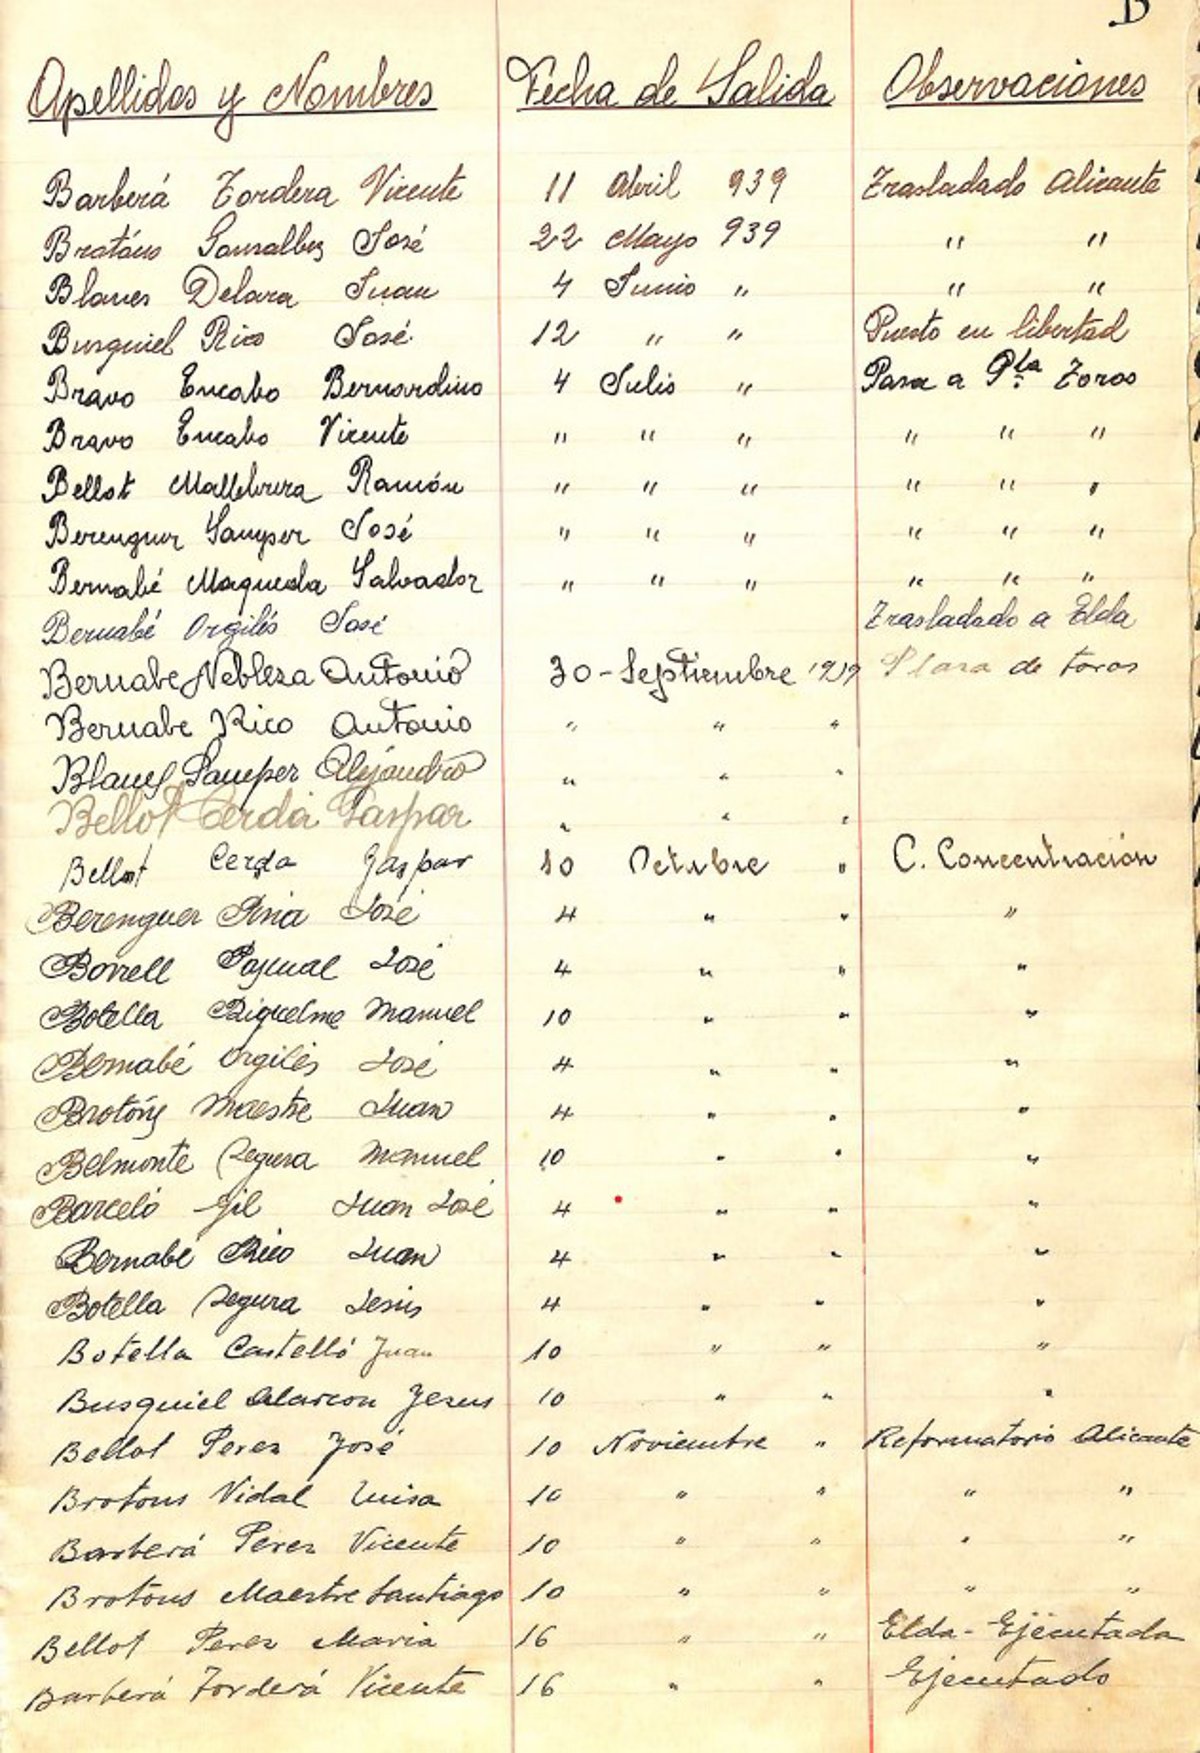 B
Apellidos y Nombres Fecha de Salida Observaciones
Barberá Tordera Vicente 11 Abril 939 Trasladado Alicante
Brotóns Gonsalbez José 22 Mayo 939 " "
Blanes Delara Juan 4 Junio " " "
Busquiel Rico José 12 " " Puesto en libertad
Bravo Encabo Bernardino 4 Julio " Pasa a Pla. Toros
Bravo Encabo Vicente " " " " " "
Bellot Mallebrera Ramón " " " " " "
Berenguer Samper José " " " " " "
Bernabé Maqueda Salvador " " " " " "
Bernabé Orgilés José Trasladado a Elda
Bernabe Nebleza Antonio 30 - Septiembre 1939 Plaza de toros
Bernabe Rico Antonio " " "
Blanes Samper Alejandro " " "
Bellot Cerdá Gaspar " " "
Bellot Cerda Gaspar 10 Octubre " C. Concentración
Berenguer Pina José 4 " " "
Borrell Pascual José 4 " " "
Botella Riquelme Manuel 10 " " "
Bernabé Orgilés José 4 " " "
Brotóns Maestre Juan 4 " " "
Belmonte Segura Manuel 10 " " "
Barceló Gil Juan José 4 " " "
Bernabé Rico Juan 4 " " "
Botella Segura Jesús 4 " " "
Botella Castelló Juan 10 " " "
Busquiel Alarcon Jesus 10 " " "
Bellot Perez José 10 Noviembre " Reformatorio Alicante
Brotons Vidal Luisa 10 " " " "
Barberá Perez Vicente 10 " " " "
Brotóns Maestre Santiago 10 " " " "
Bellot Perez Maria 16 " " Elda - Ejecutada
Barberá Torderá Vicente 16 " " Ejecutado